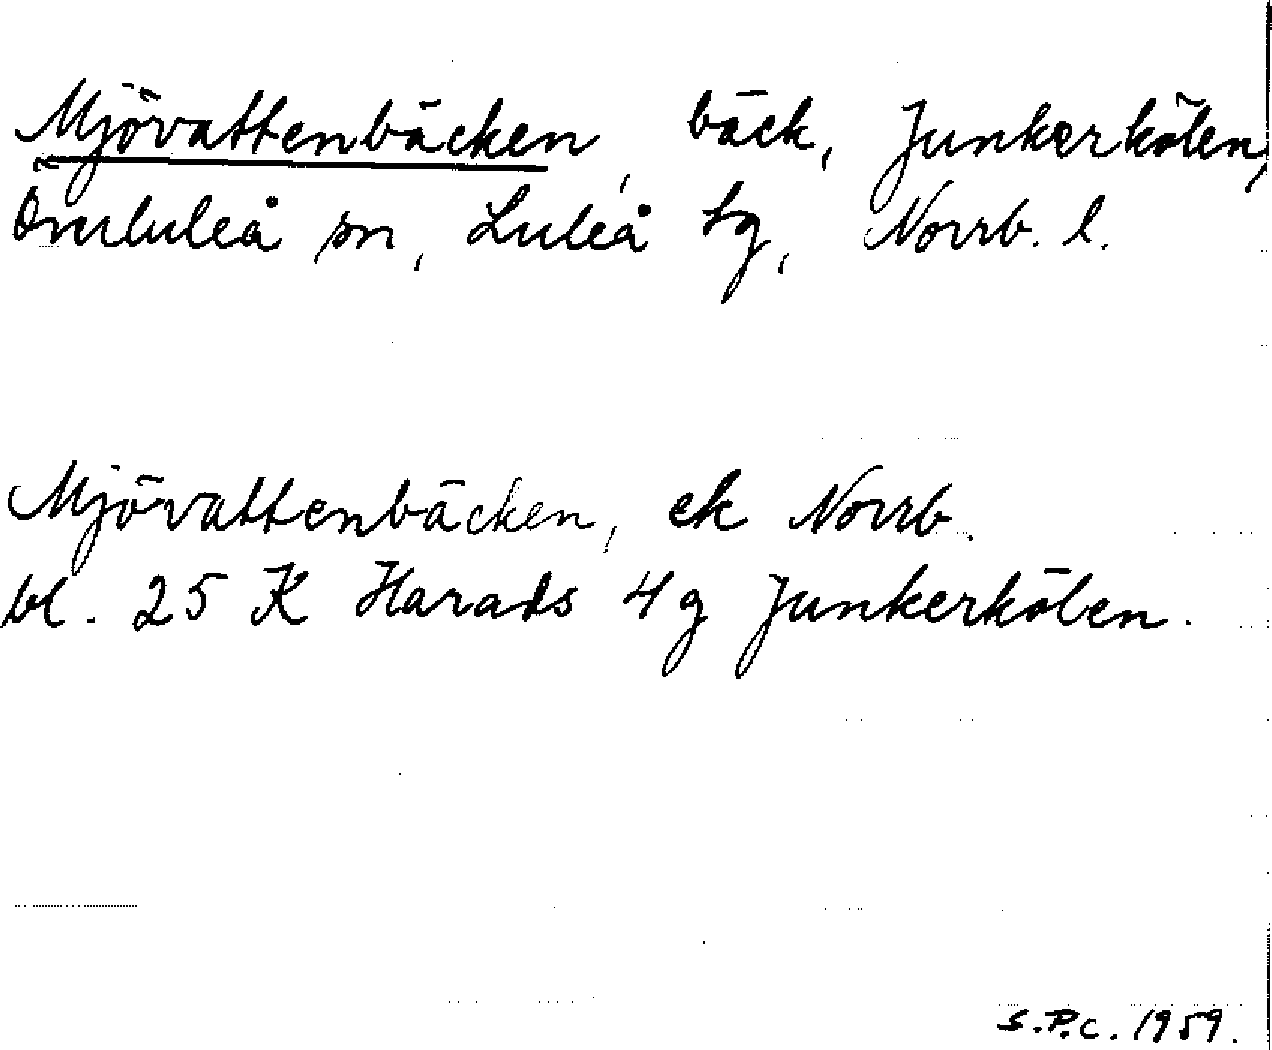 Mjövattenbäcken, bäck, Junkerkölen,
Överluleå sn, Luleå tg, Norrb. l.
Mjövattenbäcken, ek Norrb.
bl. 25 K Harads 4 g Junkerkölen.
S.P.C. 1959.